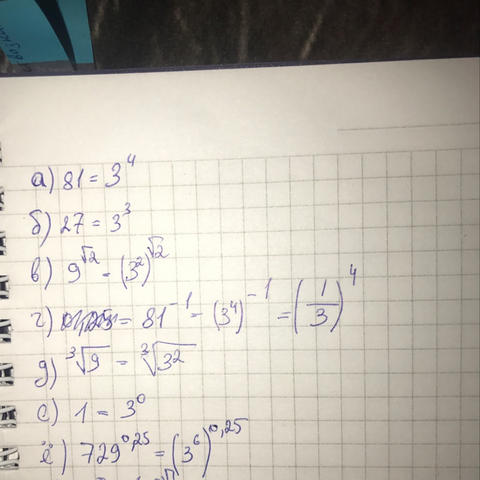 а) 81 = 3⁴
б) 27 = 3³
в) 9^√2 = (3²)^√2
г) = 81⁻¹ = (3⁴)⁻¹ = (1/3)⁴
д) ³√9 = ³√3²
е) 1 = 3⁰
ё) 729^0,25 = (3⁶)^0,25